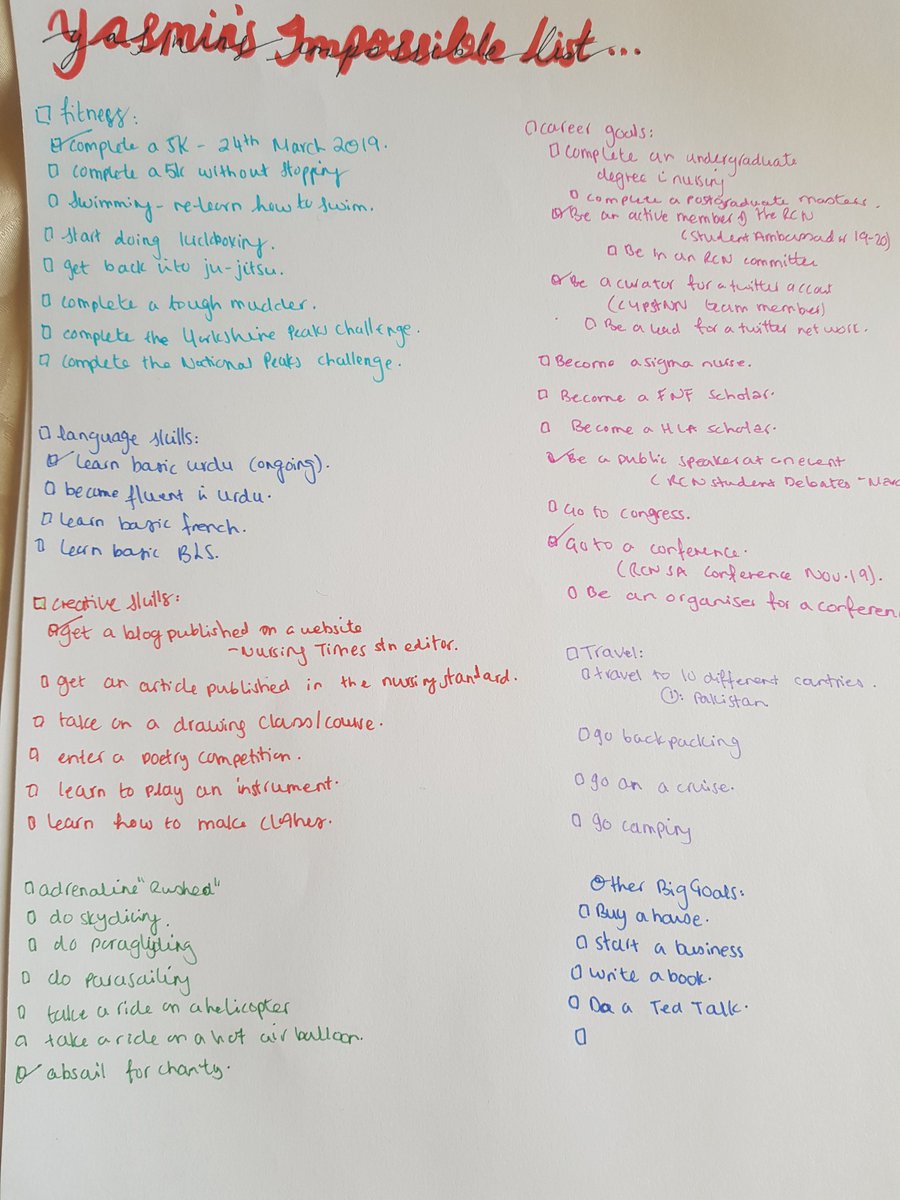 Yasmin's Impossible List...
fitness:
complete a 5K - 24th March 2019.
complete a 5k without stopping
swimming - re-learn how to swim.
start doing kickboxing.
get back into ju-jitsu.
complete a tough mudder.
complete the Yorkshire Peaks challenge.
complete the National Peaks challenge.
language skills:
learn basic urdu (ongoing).
become fluent in urdu.
learn basic french.
learn basic BLS.
creative skills:
get a blog published on a website
- Nursing Times stn editor.
get an article published in the nursing standard.
take on a drawing class/course.
enter a poetry competition.
learn to play an instrument.
learn how to make clothes.
adrenaline "Rushed"
do skydiving.
do paraglyding
do parasailing
take a ride on a helicopter
take a ride on a hot air balloon.
absail for charity.
career goals:
complete an undergraduate
degree in nursing
complete a postgraduate masters.
Be an active member of the RCN
(Student Ambassador 19-20)
Be in an RCN committee
Be a curator for a twitter account
(CYPSTNN team member)
Be a lead for a twitter network.
Become a sigma nurse.
Become a FNF scholar.
Become a HLA scholar.
Be a public speaker at an event
(RCN Student Debates - Marc
Go to congress.
Go to a conference.
(RCN SA conference Nov.19).
Be an organiser for a conferen
Travel:
travel to 10 different cantries.
①: Pakistan
go backpacking
go on a cruise.
go camping
Other Big Goals:
Buy a house.
start a business
write a book.
Do a Ted Talk.